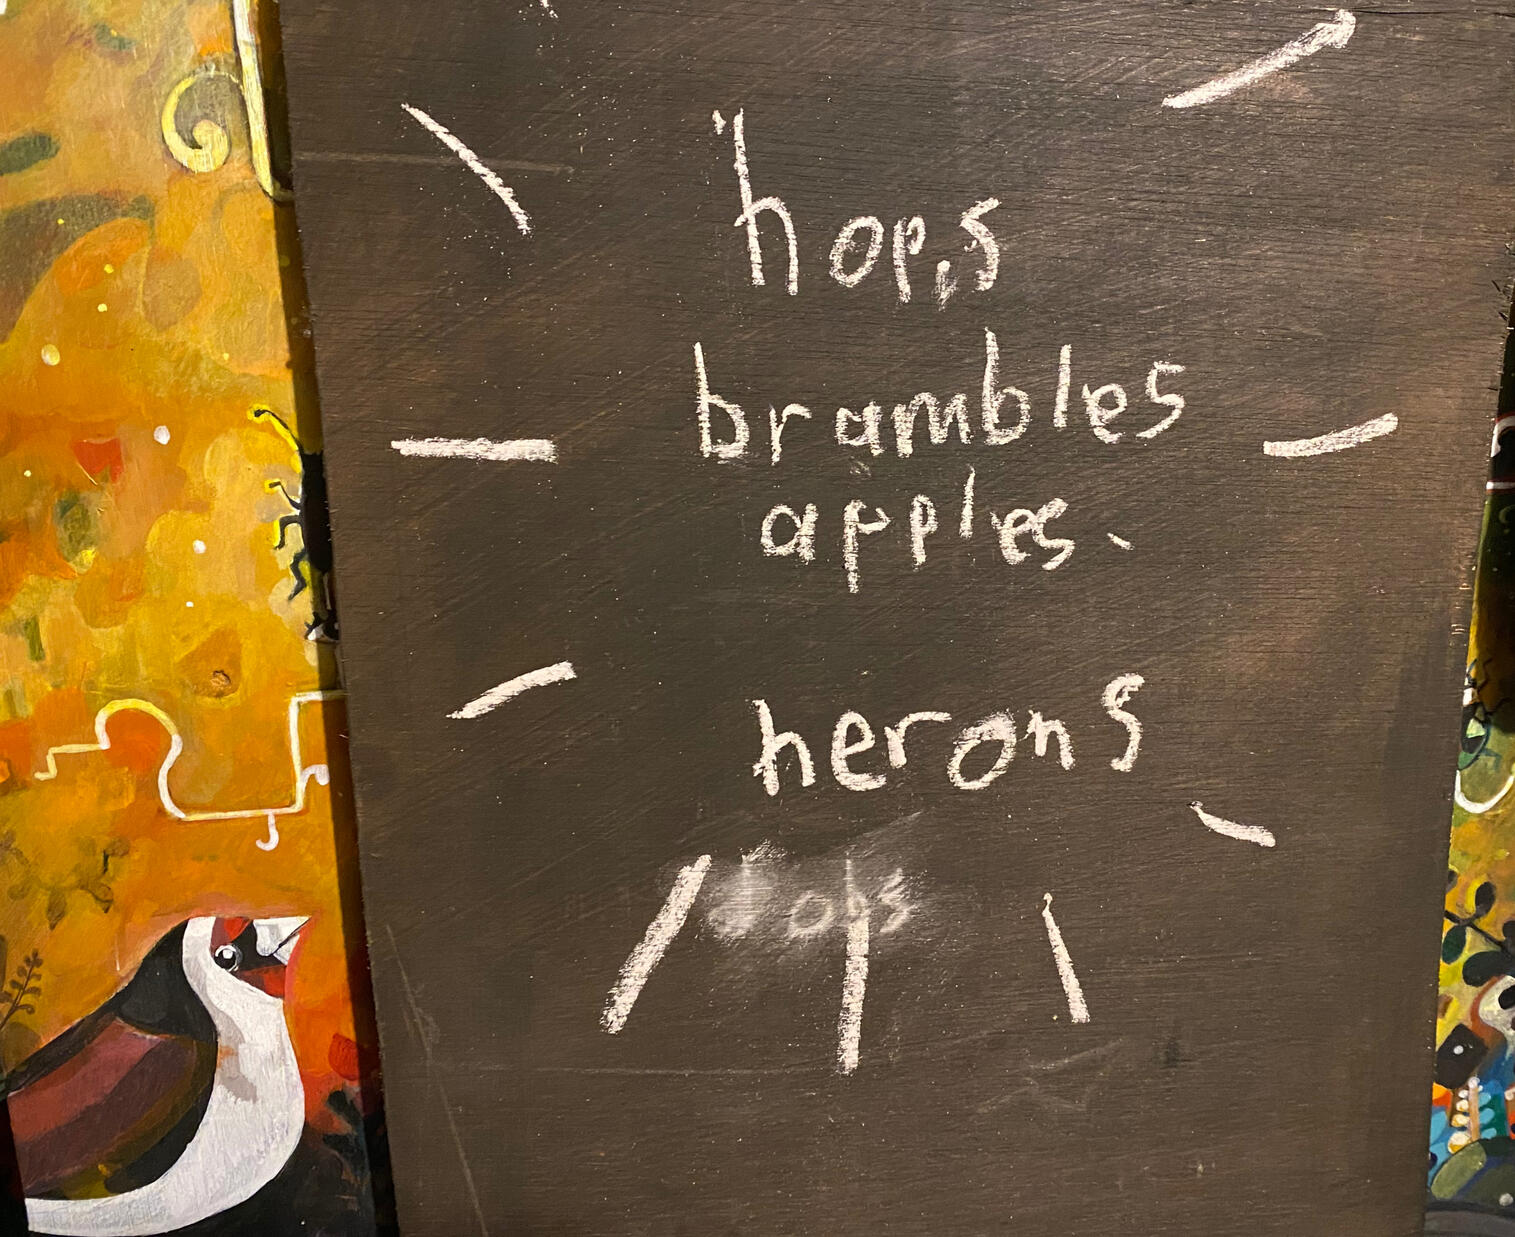 hops
brambles
apples.
herons